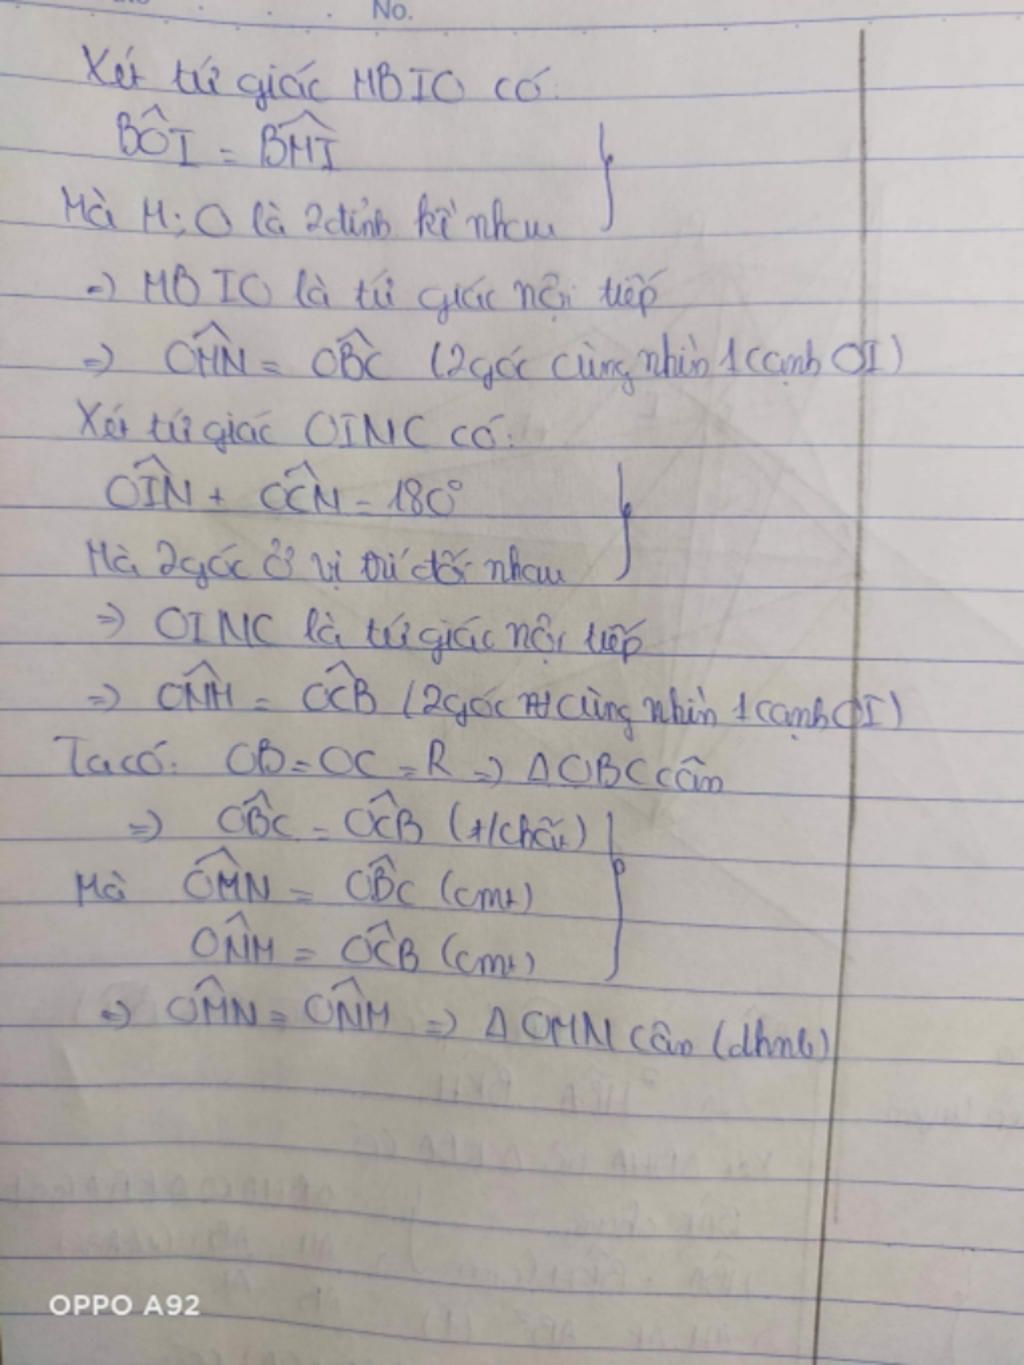 No.
Xét tứ giác MBIO có:
BÔI = BM̂I
Mà M; O là 2 đỉnh kề nhau
=> MBIO là tứ giác nội tiếp
=> OM̂N = OB̂C (2 góc cùng nhìn 1 cạnh OI)
Xét tứ giác OINC có:
OÎN + OĈN = 180°
Mà 2 góc ở vị trí đối nhau
=> OINC là tứ giác nội tiếp
=> ON̂M = OĈB (2 góc cùng nhìn 1 cạnh OI)
Ta có: OB = OC = R => ΔOBC cân
=> OB̂C = OĈB (t/chất)
Mà OM̂N = OB̂C (cmt)
ON̂M = OĈB (cmt)
=> OM̂N = ON̂M => ΔOMN cân (dhnb)
OPPO A92